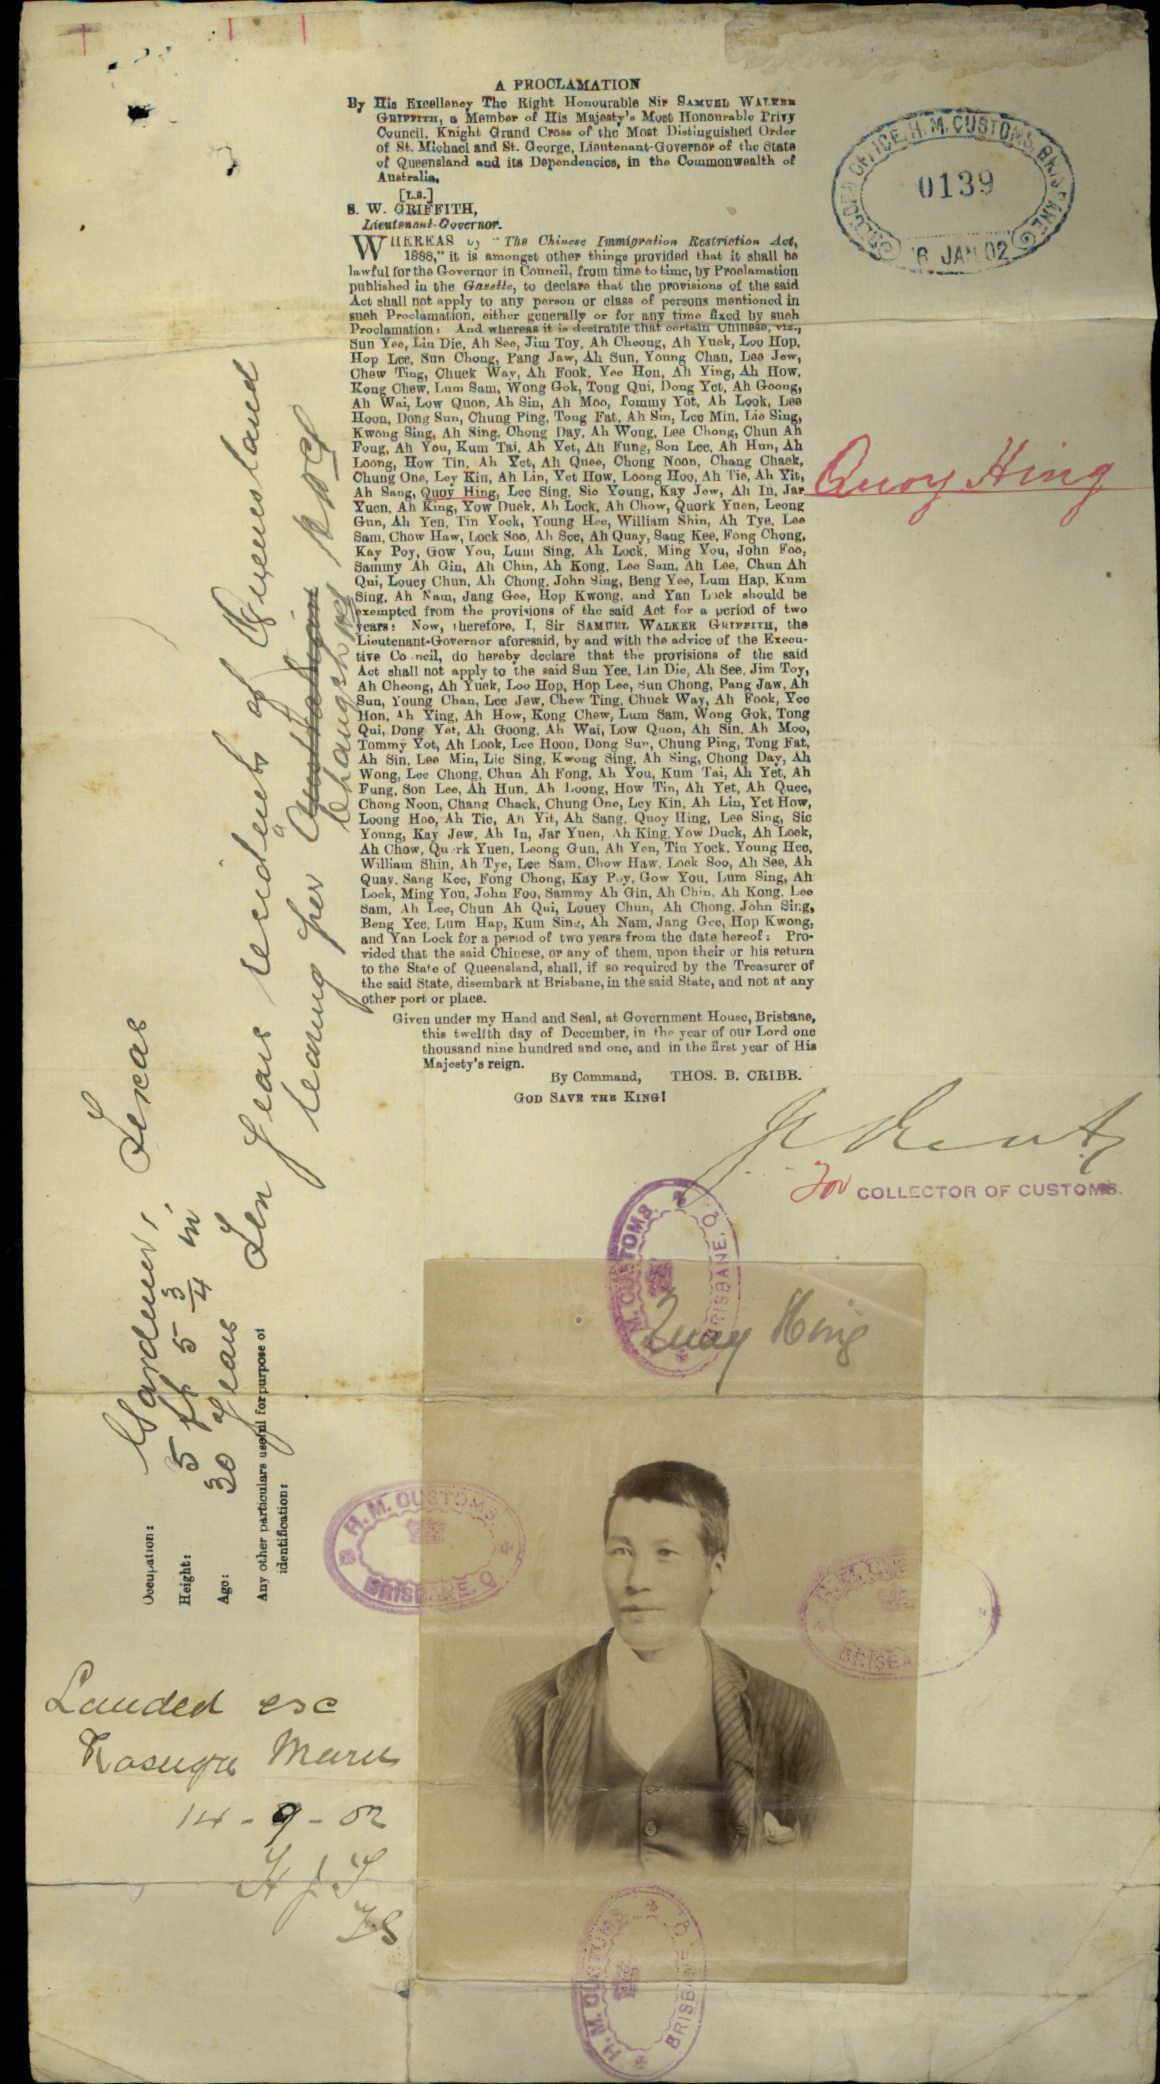 A PROCLAMATION
By His Excellency The Right Honourable Sir SAMUEL WALKER
GRIFFITH, a Member of His Majesty's Most Honourable Privy
Council, Knight Grand Cross of the Most Distinguished Order
of St. Michael and St. George, Lieutenant-Governor of the State
of Queensland and its Dependencies, in the Commonwealth of
Australia.
[L.S.]
S. W. GRIFFITH,
Lieutenant-Governor.
WHEREAS by "The Chinese Immigration Restriction Act,
1888," it is amongst other things provided that it shall be
lawful for the Governor in Council, from time to time, by Proclamation
published in the Gazette, to declare that the provisions of the said
Act shall not apply to any person or class of persons mentioned in
such Proclamation, either generally or for any time fixed by such
Proclamation: And whereas it is desirable that certain Chinese, viz.,
Sun Yee, Lin Die, Ah See, Jim Toy, Ah Cheong, Ah Yuck, Loo Hop,
Hop Lee, Sun Chong, Pang Jaw, Ah Sun, Young Chan, Lee Jew,
Chew Ting, Chuck Way, Ah Fook, Yee Hon, Ah Ying, Ah How,
Kong Chew, Lum Sam, Wong Gok, Tong Qui, Dong Yet, Ah Goong,
Ah Wai, Low Quon, Ah Sin, Ah Moo, Tommy Yot, Ah Look, Lee
Hoon, Dong Sun, Chung Ping, Tong Fat, Ah Sin, Lee Min, Lie Sing,
Kwong Sing, Ah Sing, Chong Day, Ah Wong, Lee Chong, Chun Ah
Fong, Ah You, Kum Tai, Ah Yet, Ah Fung, Son Lee, Ah Hun, Ah
Loong, How Tin, Ah Yet, Ah Quee, Chong Noon, Chang Chack,
Chung One, Ley Kin, Ah Lin, Yet How, Loong Hoo, Ah Tie, Ah Yit,
Ah Sang, Quoy Hing, Lee Sing, Sie Young, Kay Jew, Ah In, Jar
Yuen, Ah King, Yow Duck, Ah Lock, Ah Chow, Quork Yuen, Leong
Gun, Ah Yen, Tin Yock, Young Hee, William Shin, Ah Tye, Lee
Sam, Chow Haw, Lock Soo, Ah See, Ah Quay, Sang Kee, Fong Chong,
Kay Poy, Gow You, Lum Sing, Ah Lock, Ming You, John Foo,
Sammy Ah Gin, Ah Chin, Ah Kong, Lee Sam, Ah Lee, Chun Ah
Qui, Louey Chun, Ah Chong, John Sing, Beng Yee, Lum Hap, Kum
Sing, Ah Nam, Jang Gee, Hop Kwong, and Yan Lock should be
exempted from the provisions of the said Act for a period of two
years: Now, therefore, I, Sir SAMUEL WALKER GRIFFITH, the
Lieutenant-Governor aforesaid, by and with the advice of the Execu-
tive Council, do hereby declare that the provisions of the said
Act shall not apply to the said Sun Yee, Lin Die, Ah See, Jim Toy,
Ah Cheong, Ah Yuck, Loo Hop, Hop Lee, Sun Chong, Pang Jaw, Ah
Sun, Young Chan, Lee Jew, Chew Ting, Chuck Way, Ah Fook, Yee
Hon, Ah Ying, Ah How, Kong Chew, Lum Sam, Wong Gok, Tong
Qui, Dong Yet, Ah Goong, Ah Wai, Low Quon, Ah Sin, Ah Moo,
Tommy Yot, Ah Look, Lee Hoon, Dong Sun, Chung Ping, Tong Fat,
Ah Sin, Lee Min, Lie Sing, Kwong Sing, Ah Sing, Chong Day, Ah
Wong, Lee Chong, Chun Ah Fong, Ah You, Kum Tai, Ah Yet, Ah
Fung, Son Lee, Ah Hun, Ah Loong, How Tin, Ah Yet, Ah Quee,
Chong Noon, Chang Chack, Chung One, Ley Kin, Ah Lin, Yet How,
Loong Hoo, Ah Tie, Ah Yit, Ah Sang, Quoy Hing, Lee Sing, Sie
Young, Kay Jew, Ah In, Jar Yuen, Ah King, Yow Duck, Ah Lock,
Ah Chow, Quork Yuen, Leong Gun, Ah Yen, Tin Yock, Young Hee,
William Shin, Ah Tye, Lee Sam, Chow Haw, Lock Soo, Ah See, Ah
Quay, Sang Kee, Fong Chong, Kay Poy, Gow You, Lum Sing, Ah
Lock, Ming You, John Foo, Sammy Ah Gin, Ah Chin, Ah Kong, Lee
Sam, Ah Lee, Chun Ah Qui, Louey Chun, Ah Chong, John Sing,
Beng Yee, Lum Hap, Kum Sing, Ah Nam, Jang Gee, Hop Kwong,
and Yan Lock for a period of two years from the date hereof: Pro-
vided that the said Chinese, or any of them, upon their or his return
to the State of Queensland, shall, if so required by the Treasurer of
the said State, disembark at Brisbane, in the said State, and not at any
other port or place.
Given under my Hand and Seal, at Government House, Brisbane,
this twelfth day of December, in the year of our Lord one
thousand nine hundred and one, and in the first year of His
Majesty's reign.
By Command, THOS. B. CRIBB.
GOD SAVE THE KING!
H.M. CUSTOMS, BRISBANE
0139
JAN 02
Quoy Hing
For COLLECTOR OF CUSTOMS.
H.M. CUSTOMS
BRISBANE. Q
Quoy Hing
H.M. CUSTOMS
BRISBANE. Q
H.M. CUSTOMS
BRISBANE. Q
Occupation: Gardener, Texas
Height: 5 ft 5 3/4 in
Age: 30 years
Any other particulars useful for purpose of
identification: Ten years residents of Queensland
leaving per Australian Changsha
Landed esc
Kasuga Maru
14-9-02